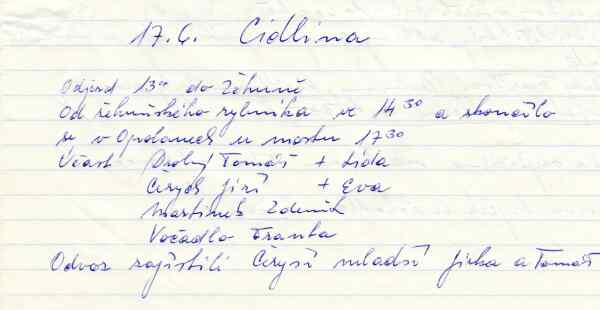 17.6. Cidlina
Odjezd 13⁰⁰ do Žehuně
Od žehuňského rybníka ve 14³⁰ a skončilo
se v Opolanech u mostu 17³⁰
Účast Drobný Tomáš + Lída
Čerych Jiří + Eva
Martinek Zdeněk
Vočadlo Franta
Odvoz zajistili Čerychi mladší Jirka a Tomáš